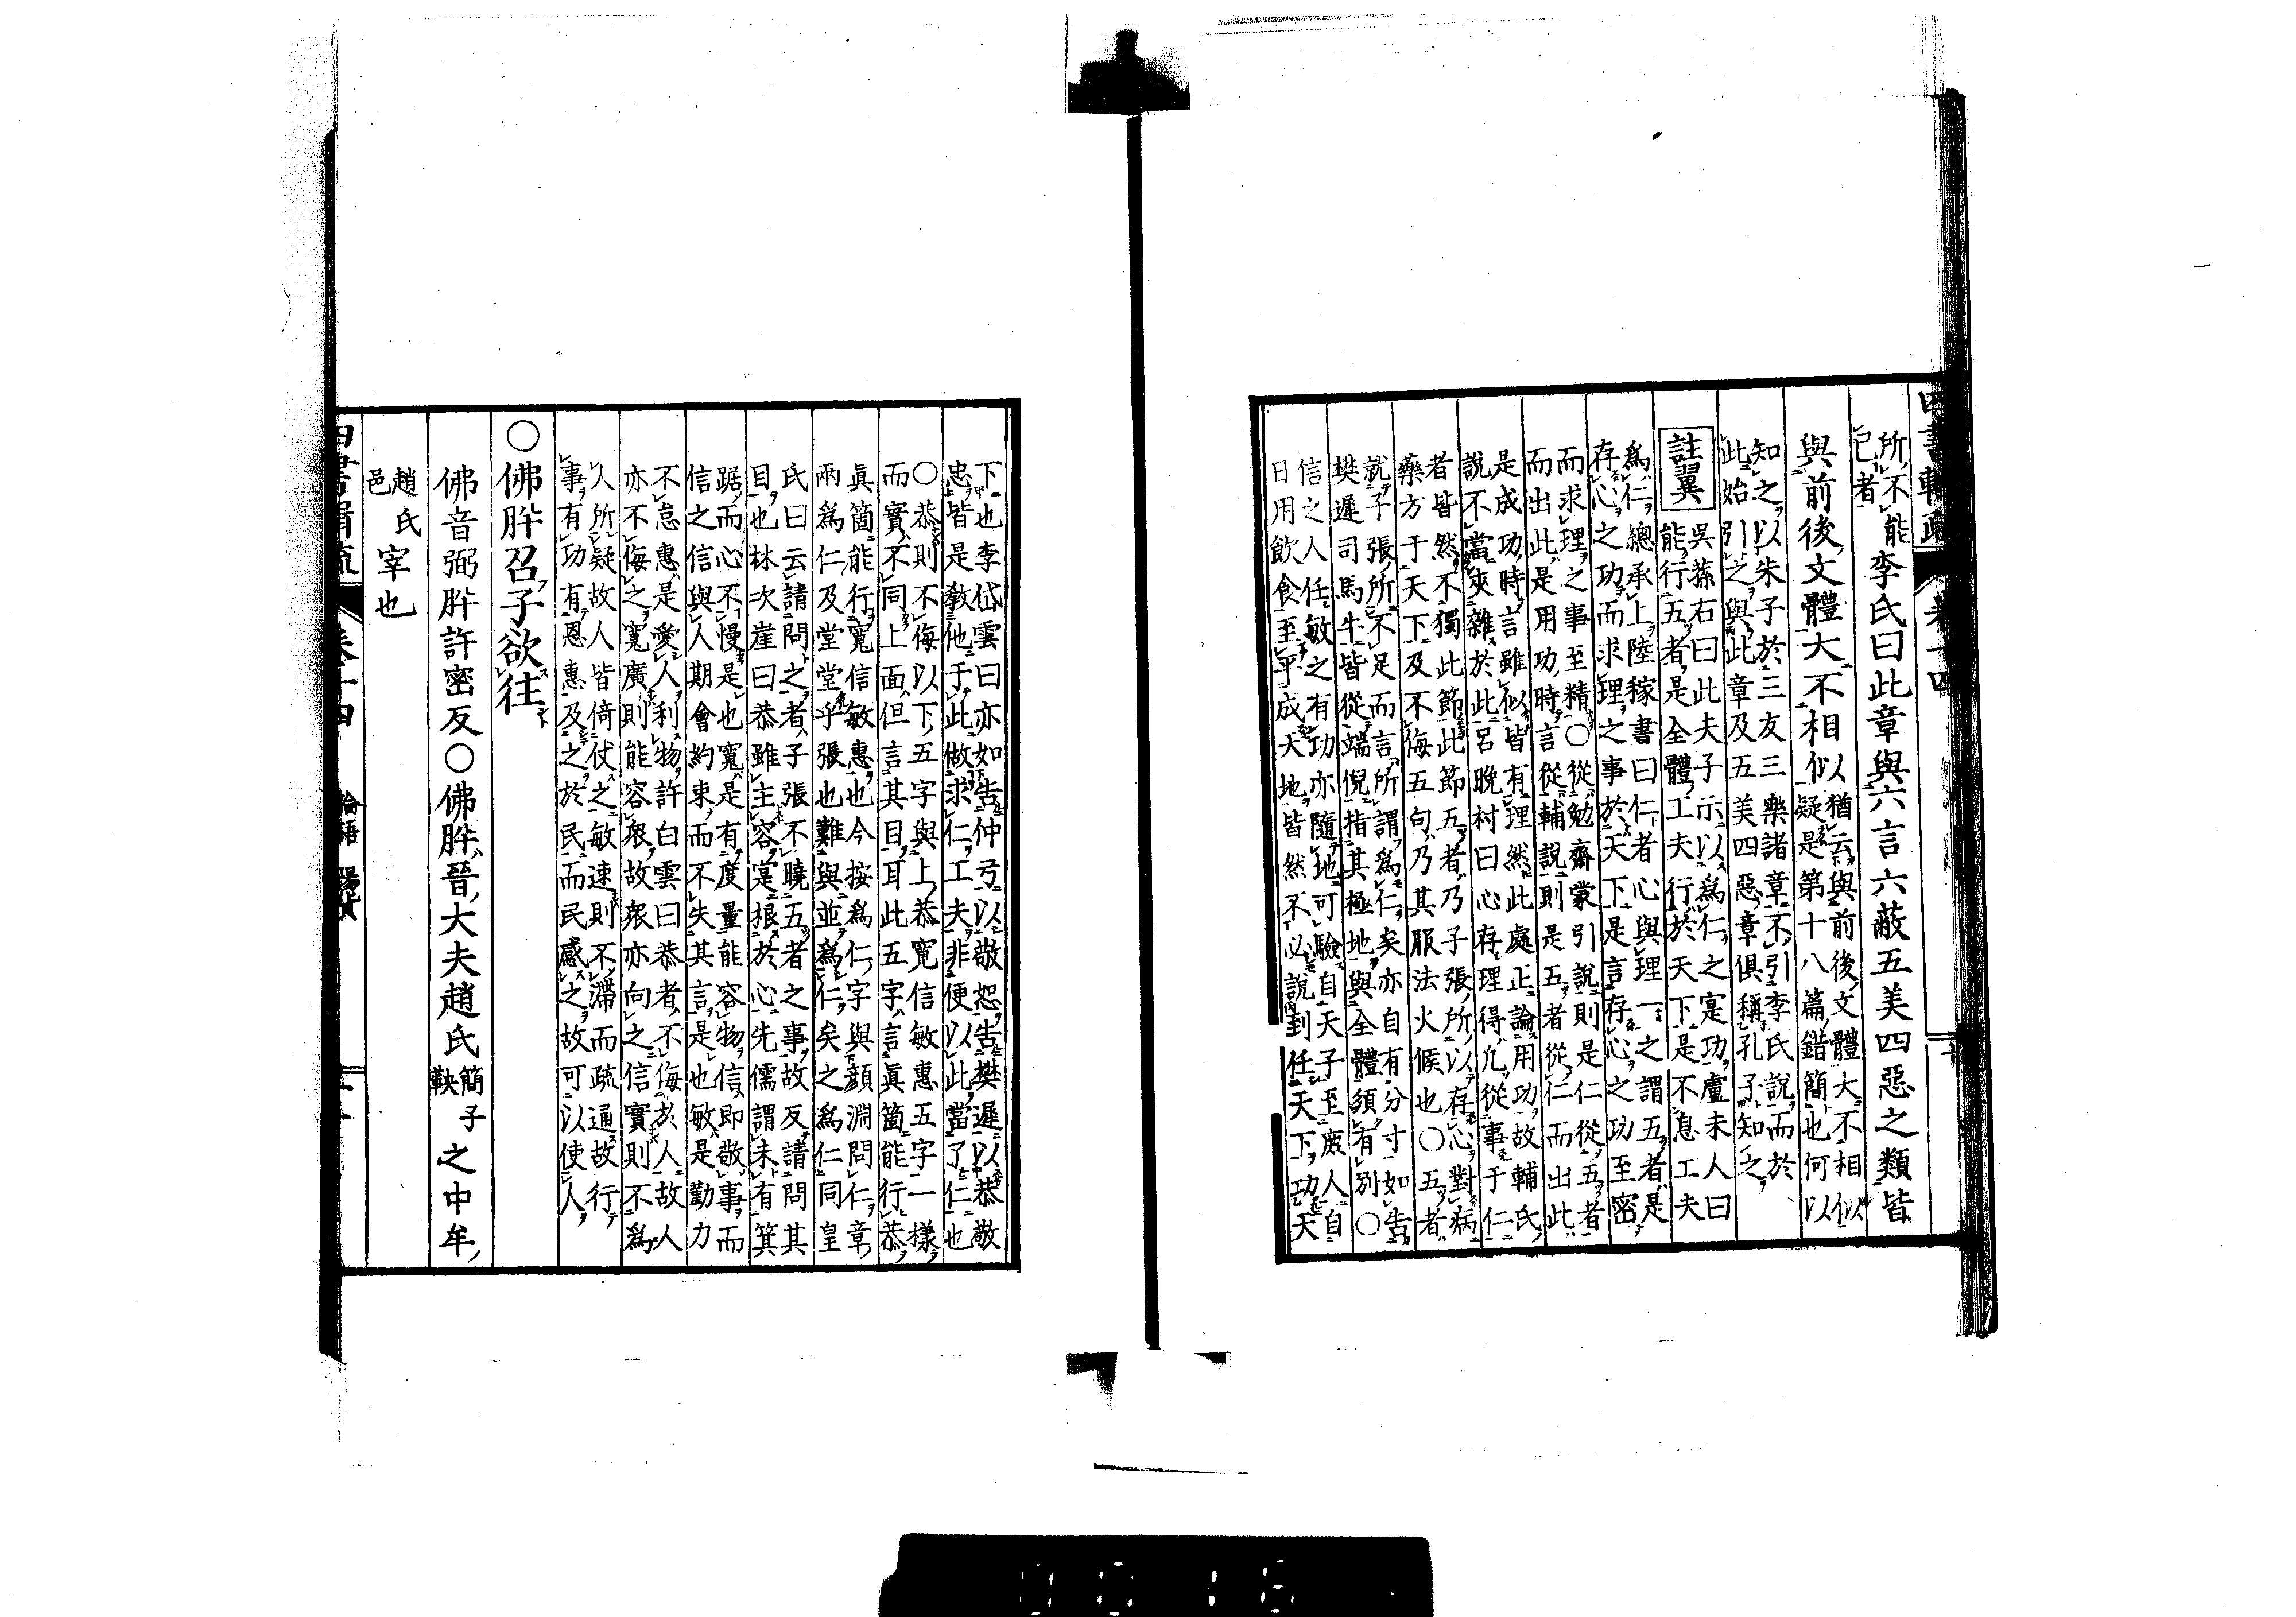 四書輯疏 卷十四
所不能
已者
李氏曰此章與六言六蔽五美四惡之類皆
與前後文體大不相似
猶云與前後文體大不相似
疑是第十八篇錯簡也何以
知之以朱子於三友三樂諸章不引李氏說而於
此始引之與此章及五美四惡章俱稱孔子知之
註翼
吳蓀右曰此夫子示以為仁之寔功盧未人曰
能行五者是全體工夫行於天下是不息工夫
為仁總承上陸稼書曰仁者心與理一之謂五者是
存心之功而求理之事於天下是言存心之功至密
而求理之事至精○從勉齋蒙引說則是仁從五者
而出此是用功時言從輔說則是五者從仁而出此
是成功時言雖似皆有理然此處正論用功故輔氏
說不當夾雜於此呂晚村曰心存理得凢從事于仁
者皆然不獨此節此節五者乃子張所以存心對病
藥方于天下及不侮五句乃其服法火候也○五者
就子張所不足而言所謂為仁矣亦自有分寸如告
樊遲司馬牛皆從端倪指其極地與全體須有別○
信之人任敏之有功亦隨地可驗自天子至庶人自
日用飲食至平成天地皆然不必說到任天下功天
下也李岱雲曰亦如告仲弓以敬恕告樊遲以恭敬
忠皆是教他于此做求仁工夫非便以此當了仁也
○恭則不侮以下五字與上恭寬信敏惠五字一樣
而實不同上面但言其目耳此五字言眞箇能行恭
眞箇能行寬信敏惠也今按為仁字與顏淵問仁章
兩為仁及堂堂乎張也難與並為仁矣之為仁同皇
氏曰云請問之者子張不曉五者之事故反請問其
目也林次崖曰恭雖主容寔根於心先儒謂未有箕
踞而心不慢是也寬是有度量能容物信即敬事而
信之信與人期會約束而不失其言是也敏是勤力
不怠惠是愛人利物許白雲曰恭者不侮於人故人
亦不侮之寬廣則能容衆故衆亦向之信實則不為
人所疑故人皆倚仗之敏速則不滯而疏通故行
事有功有恩惠及之於民而民感之故可以使人
○佛肸召子欲往
佛音弼肸許密反○佛肸晉大夫趙氏
簡子
鞅
之中牟
趙氏
邑
宰也
四書輯疏 卷十四 論語 陽貨